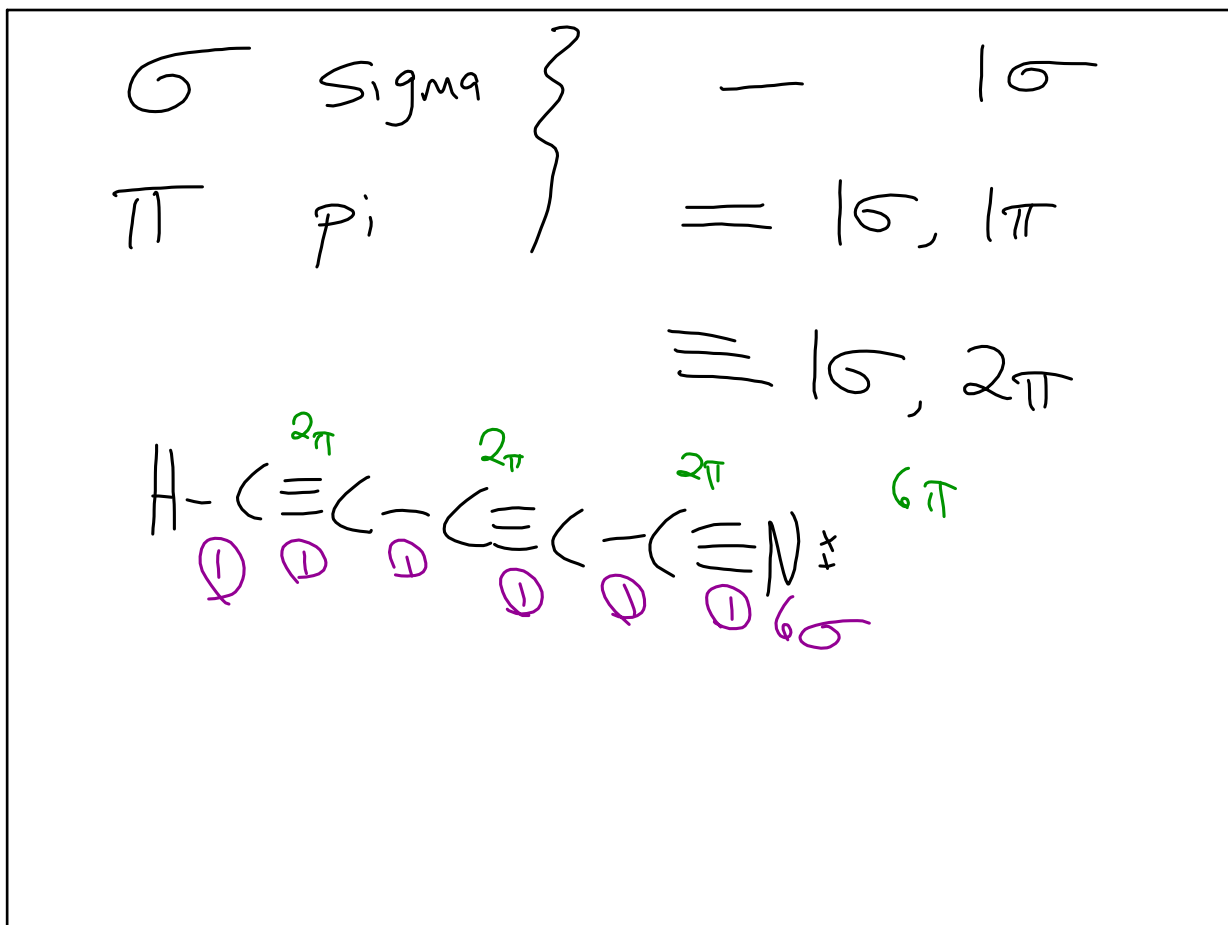 σ sigma } — 1σ
π pi = 1σ, 1π
≡ 1σ, 2π
2π 2π 2π 6π
H-C≡C-C≡C-C≡N:
① ① ① ① ① ① 6σ